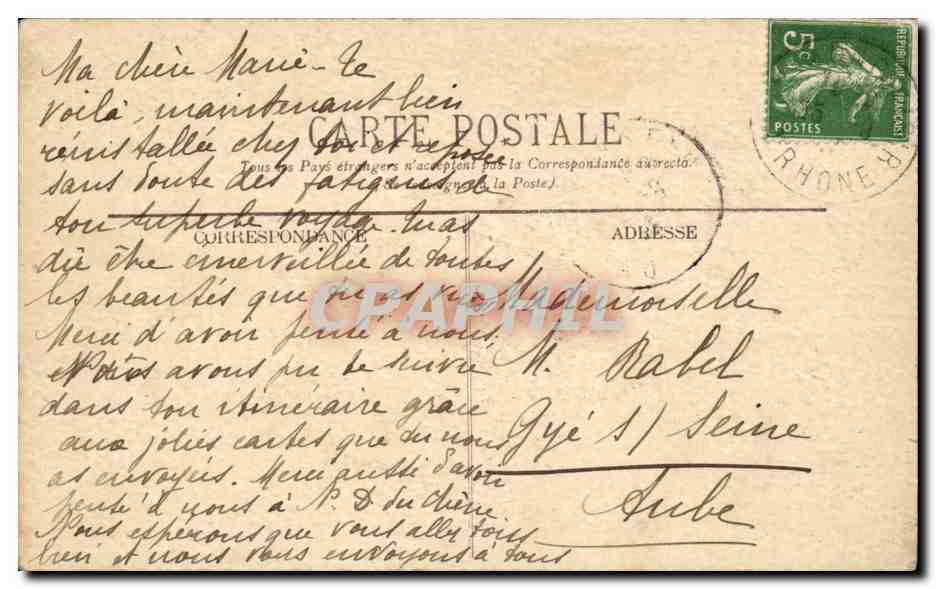 Ma chère Marie - Te
voilà, maintenant bien
réinstallée chez toi et reposée
sans doute des fatigues de
ton superbe voyage. Tu as
dû être émerveillée de toutes
les beautés que tu as vues
Merci d'avoir pensé à nous,
Nous avons pu te suivre
dans ton itinéraire grâce
aux jolies cartes que tu nous
as envoyés. Merci aussi d'avoir
pensé à nous à N. D. du Chêne
Nous espérons que vous allez tous
bien et nous vous envoyons à tous
CARTE POSTALE
Tous les Pays étrangers n'acceptent pas la Correspondance au recto.
à la Poste).
CORRESPONDANCE
ADRESSE
Mademoiselle
M. Rabel
Gyé s/ Seine
Aube
5c
REPUBLIQUE FRANÇAISE
POSTES
RHONE
CPAPHIL